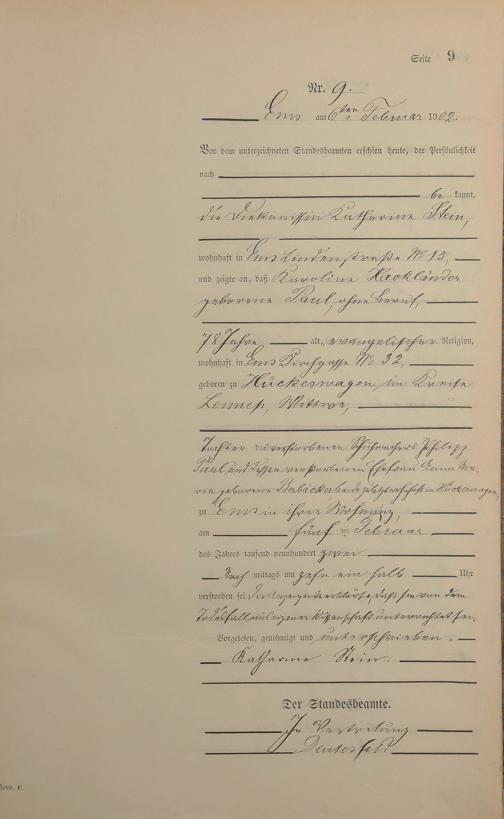 Seite 9
Nr. 9.
Ems am 6ten Februar 1902.
Vor dem unterzeichneten Standesbeamten erschien heute, der Persönlichkeit
nach
be kannt,
die Diakonissin Katharine Stein,
wohnhaft in Ems Lindenstraße No 15,
und zeigte an, daß Karoline Hackländer
geborene Paul, ohne Beruf,
78 Jahre, alt, evangelischer Religion,
wohnhaft in Ems Kirchgasse No 32,
geboren zu Hückeswagen, im Kreise
Lennep, Wittwe,
Tochter des verstorbenen Philipp
Paul und dessen verstorbenen Ehefrau Anna Ma-
ria geborene beide zuletzt wohnhaft in Hückeswagen,
zu Ems in ihrer Wohnung,
am fünf ten Februar
des Jahres tausend neunhundert zwei
Nach mittags um zehn ein halb Uhr
verstorben sei. Die Anzeigende erklärte, daß sie von dem
Todesfall aus eigener Wissenschaft unterrichtet sei.
Vorgelesen, genehmigt und unterschrieben.
Katharine Stein.
Der Standesbeamte.
In Vertretung
Form. C.